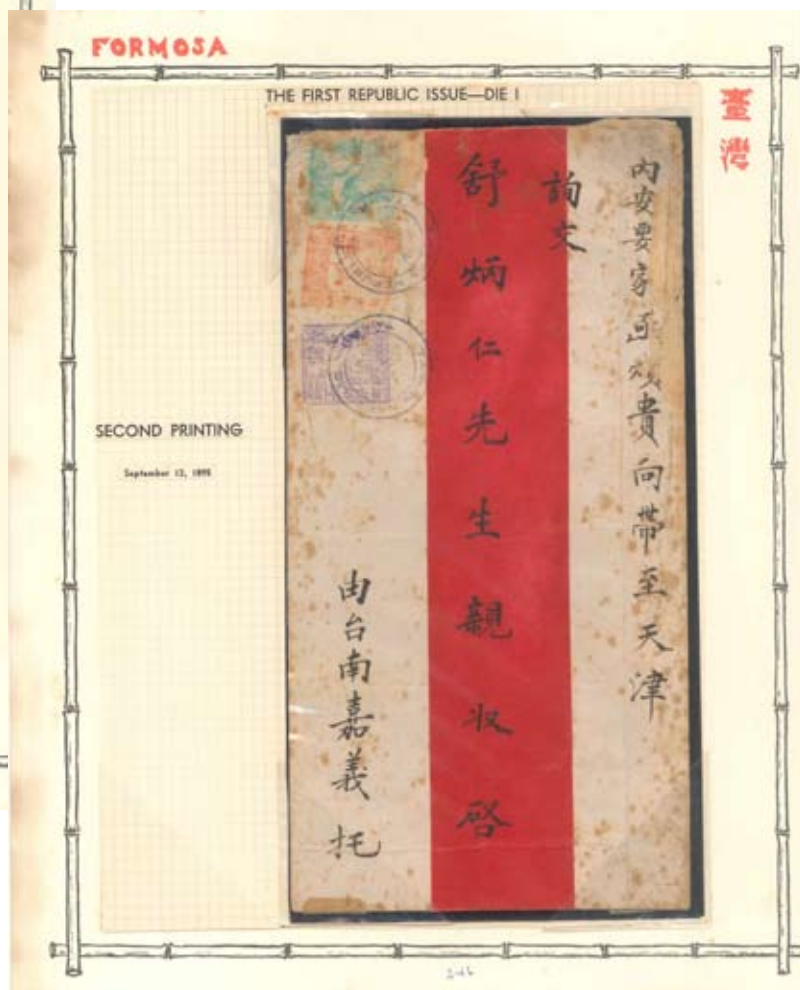 FORMOSA
THE FIRST REPUBLIC ISSUE—DIE I
臺灣
SECOND PRINTING
September 12, 1895
內安要家函煩貴向帶至天津
詢交
舒炳仁先生親收啓
由台南嘉義托